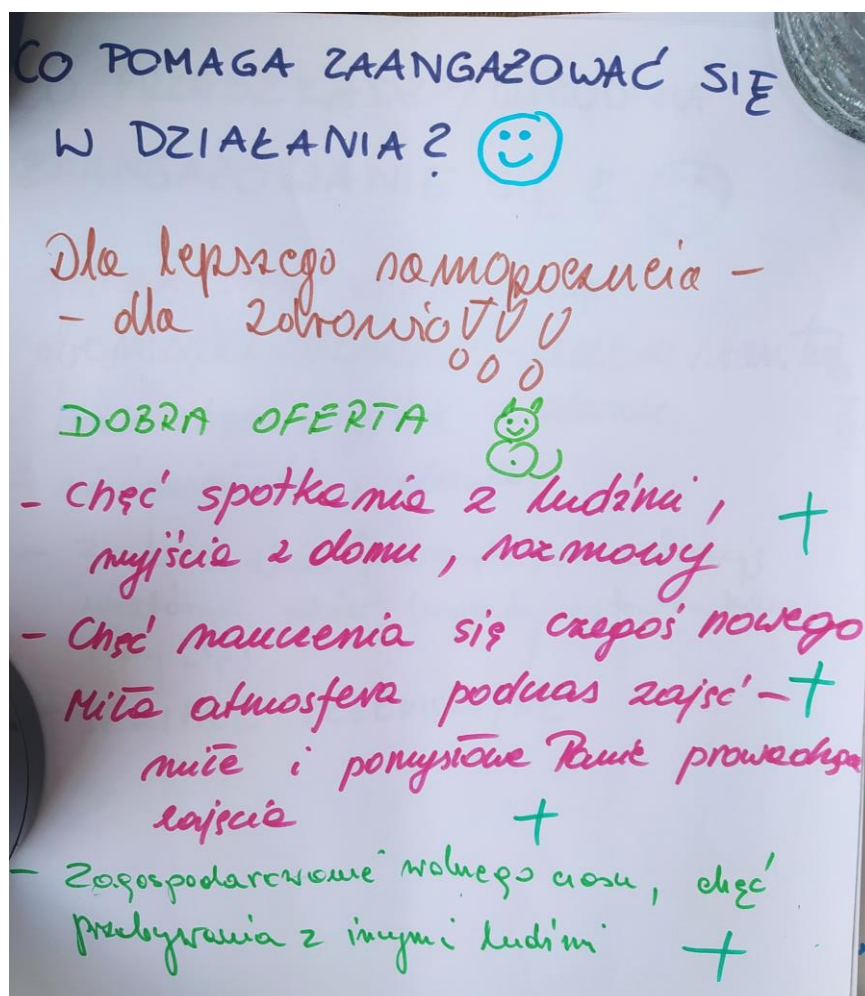 CO POMAGA ZAANGAŻOWAĆ SIĘ
W DZIAŁANIA?
Dla lepszego samopoczucia -
- dla zdrowia!!!
DOBRA OFERTA
- Chęć spotkania z ludźmi, +
wyjścia z domu, rozmowy
- Chęć nauczenia się czegoś nowego
Miła atmosfera podczas zajęć - +
miłe i pomysłowe Panie prowadzące
zajęcia +
- Zagospodarowanie wolnego czasu, chęć
przebywania z innymi ludźmi +